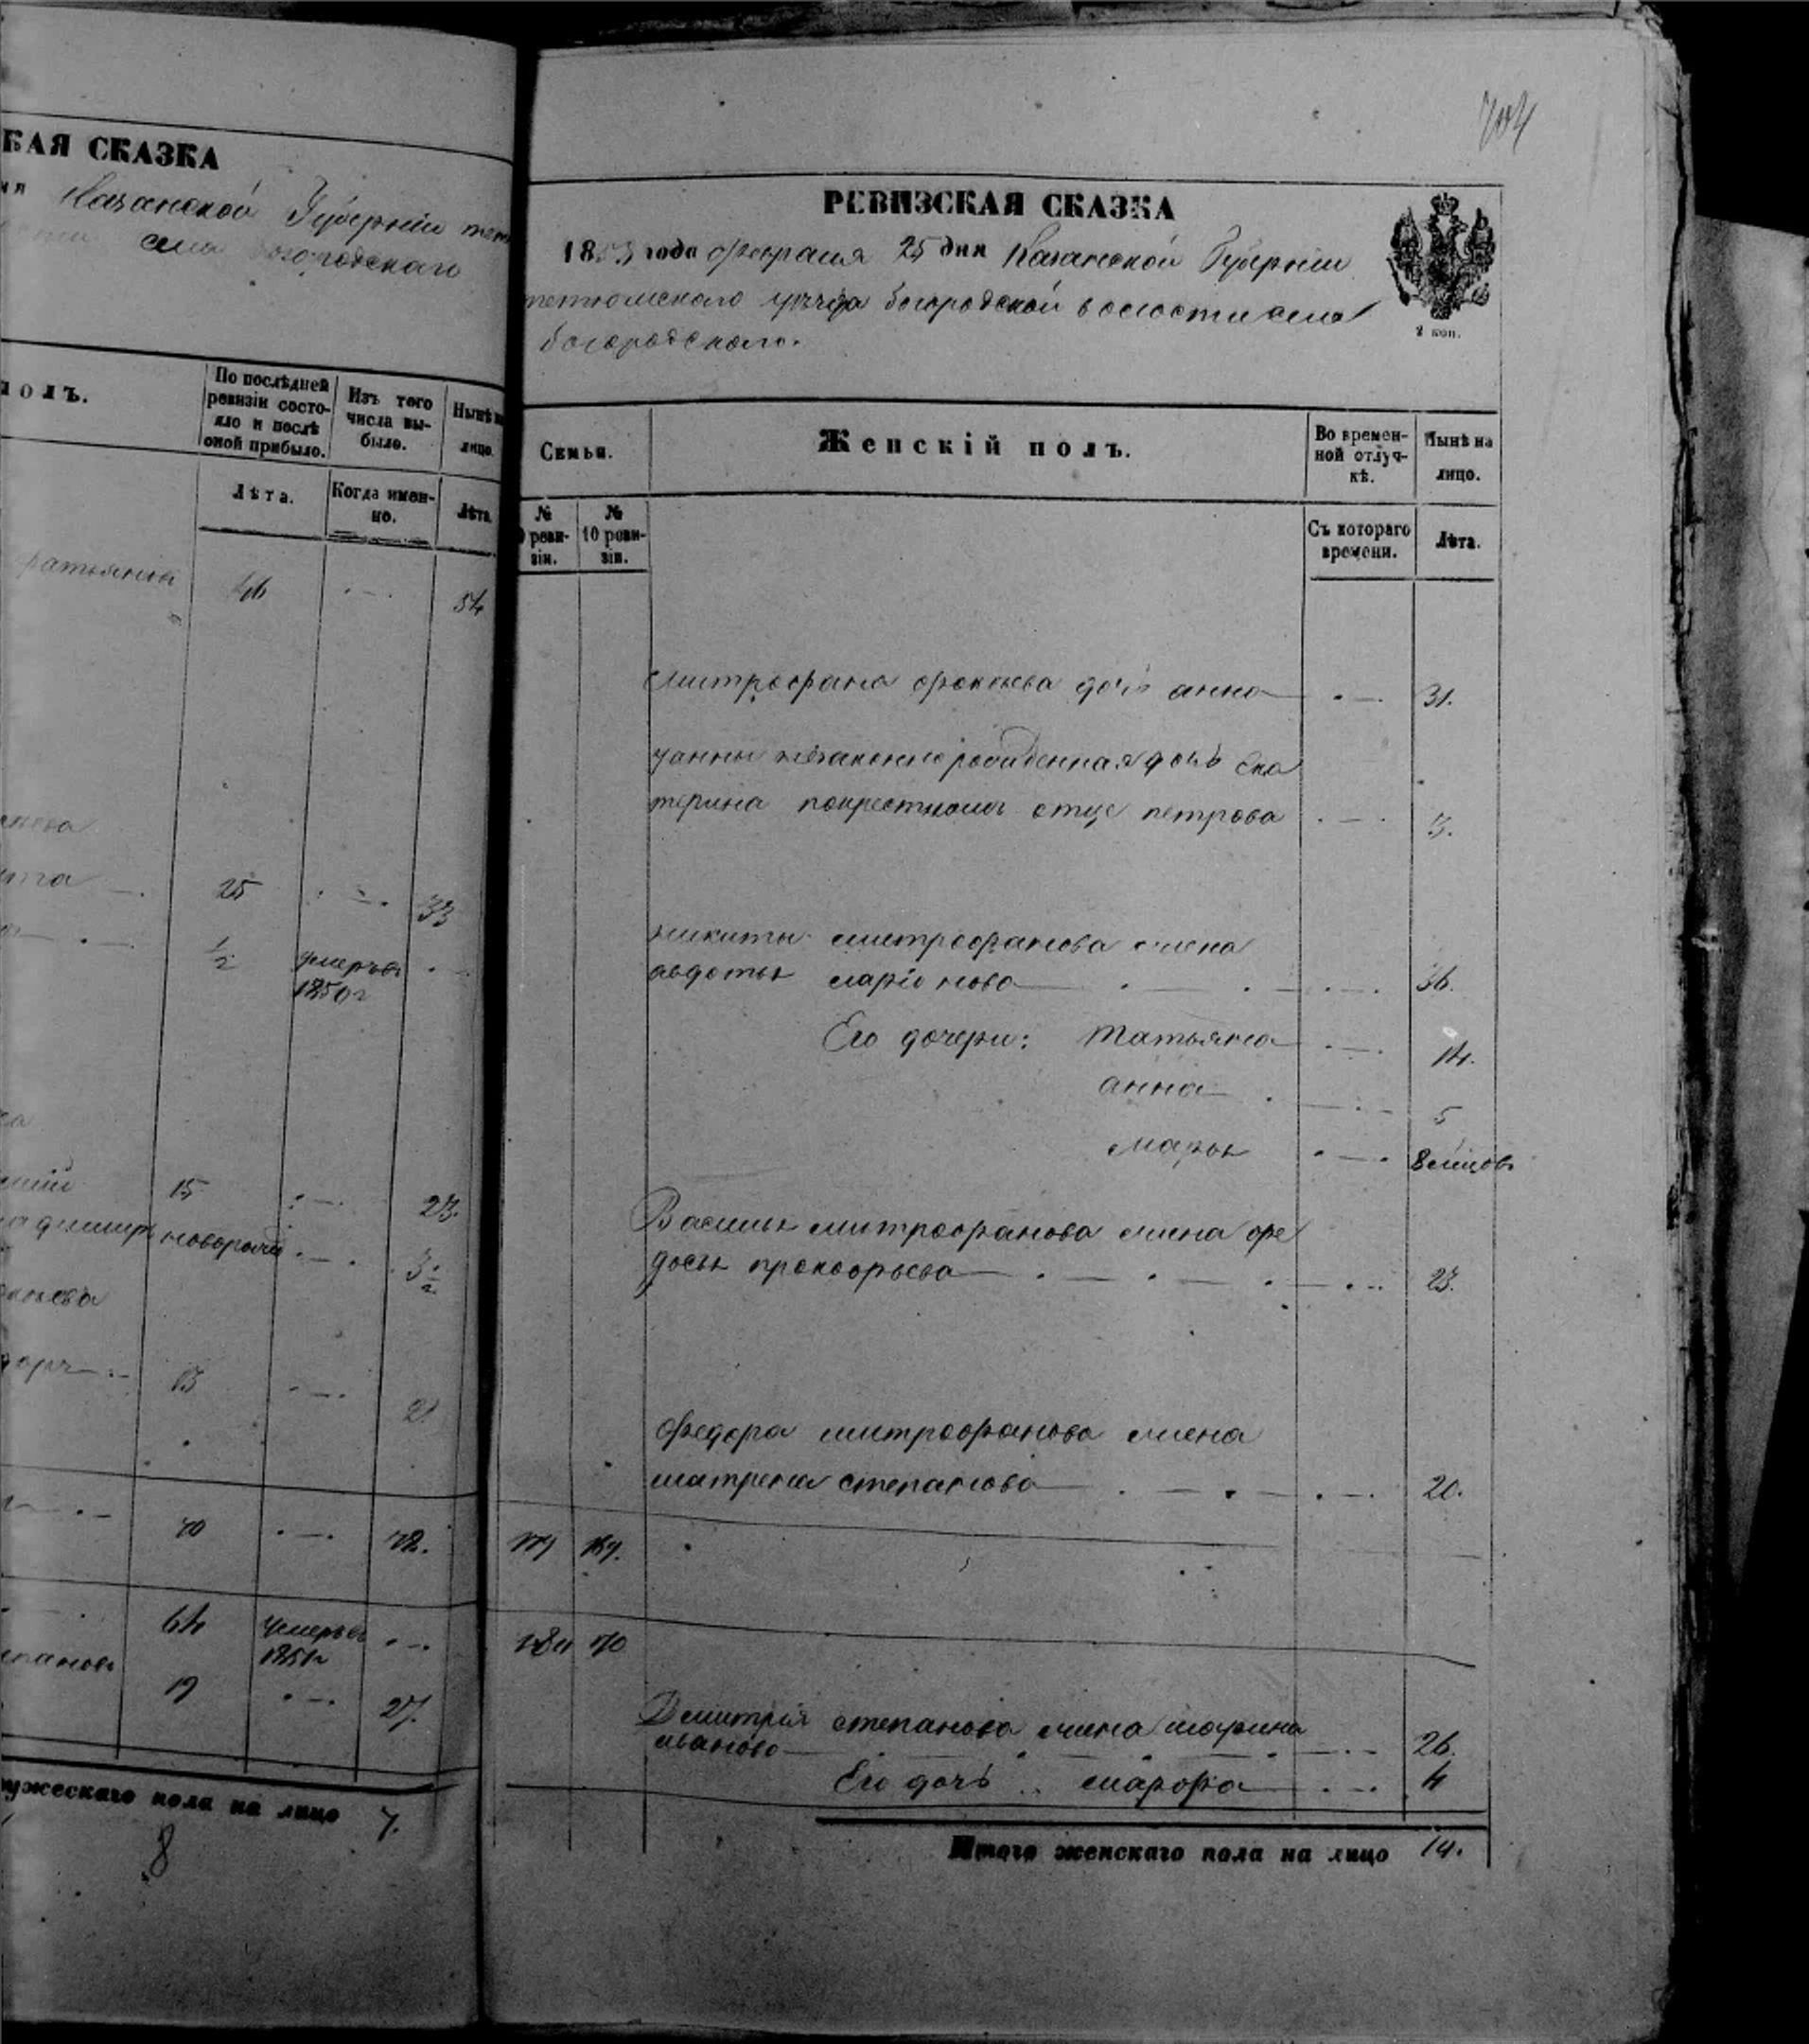 КАЯ СКАЗКА
Казанской Губерніи
села Богородскаго
полъ.
По послѣдней
ревизіи состо-
яло и послѣ
оной прибыло.
Изъ того
числа вы-
было.
Нынѣ на
лицо.
Лѣта.
Когда имен-
но.
Лѣта.
46 54
25 33
1/2 умеръ въ
1850г
15 23.
новорожд 3 1/2
13 21
70 78.
64 умеръ въ
1851г
19 27.
мужескаго пола на лицо 7.
8
704
РЕВИЗСКАЯ СКАЗКА
года февраля 25 дня Казанской Губерніи
тетюшского уѣзда богородской волости села
богородского.
2 коп.
Семьи.
Женскій полъ.
Во времен-
ной отлуч-
кѣ.
Нынѣ на
лицо.
№
9 реви-
зіи.
№
10 реви-
зіи.
Съ котораго
времени.
Лѣта.
митрофана дочь анна 31.
уанны незаконнорожденная дочь ека
терина покрестному отце петрова 3.
никиты митрофанова жена
авдотья ларіонова 36.
Его дочери: татьяна 14.
анна 5
марья 8 мѣсцовъ
Василья митрофанова жена фе
досья прокофьева 23.
федора митрофанова жена
матрена степанова 20.
179 169.
180 170
Дмитрія степанова жена марина
иванова 26.
Его дочь марфа 4
Итого женскаго пола на лицо 14.